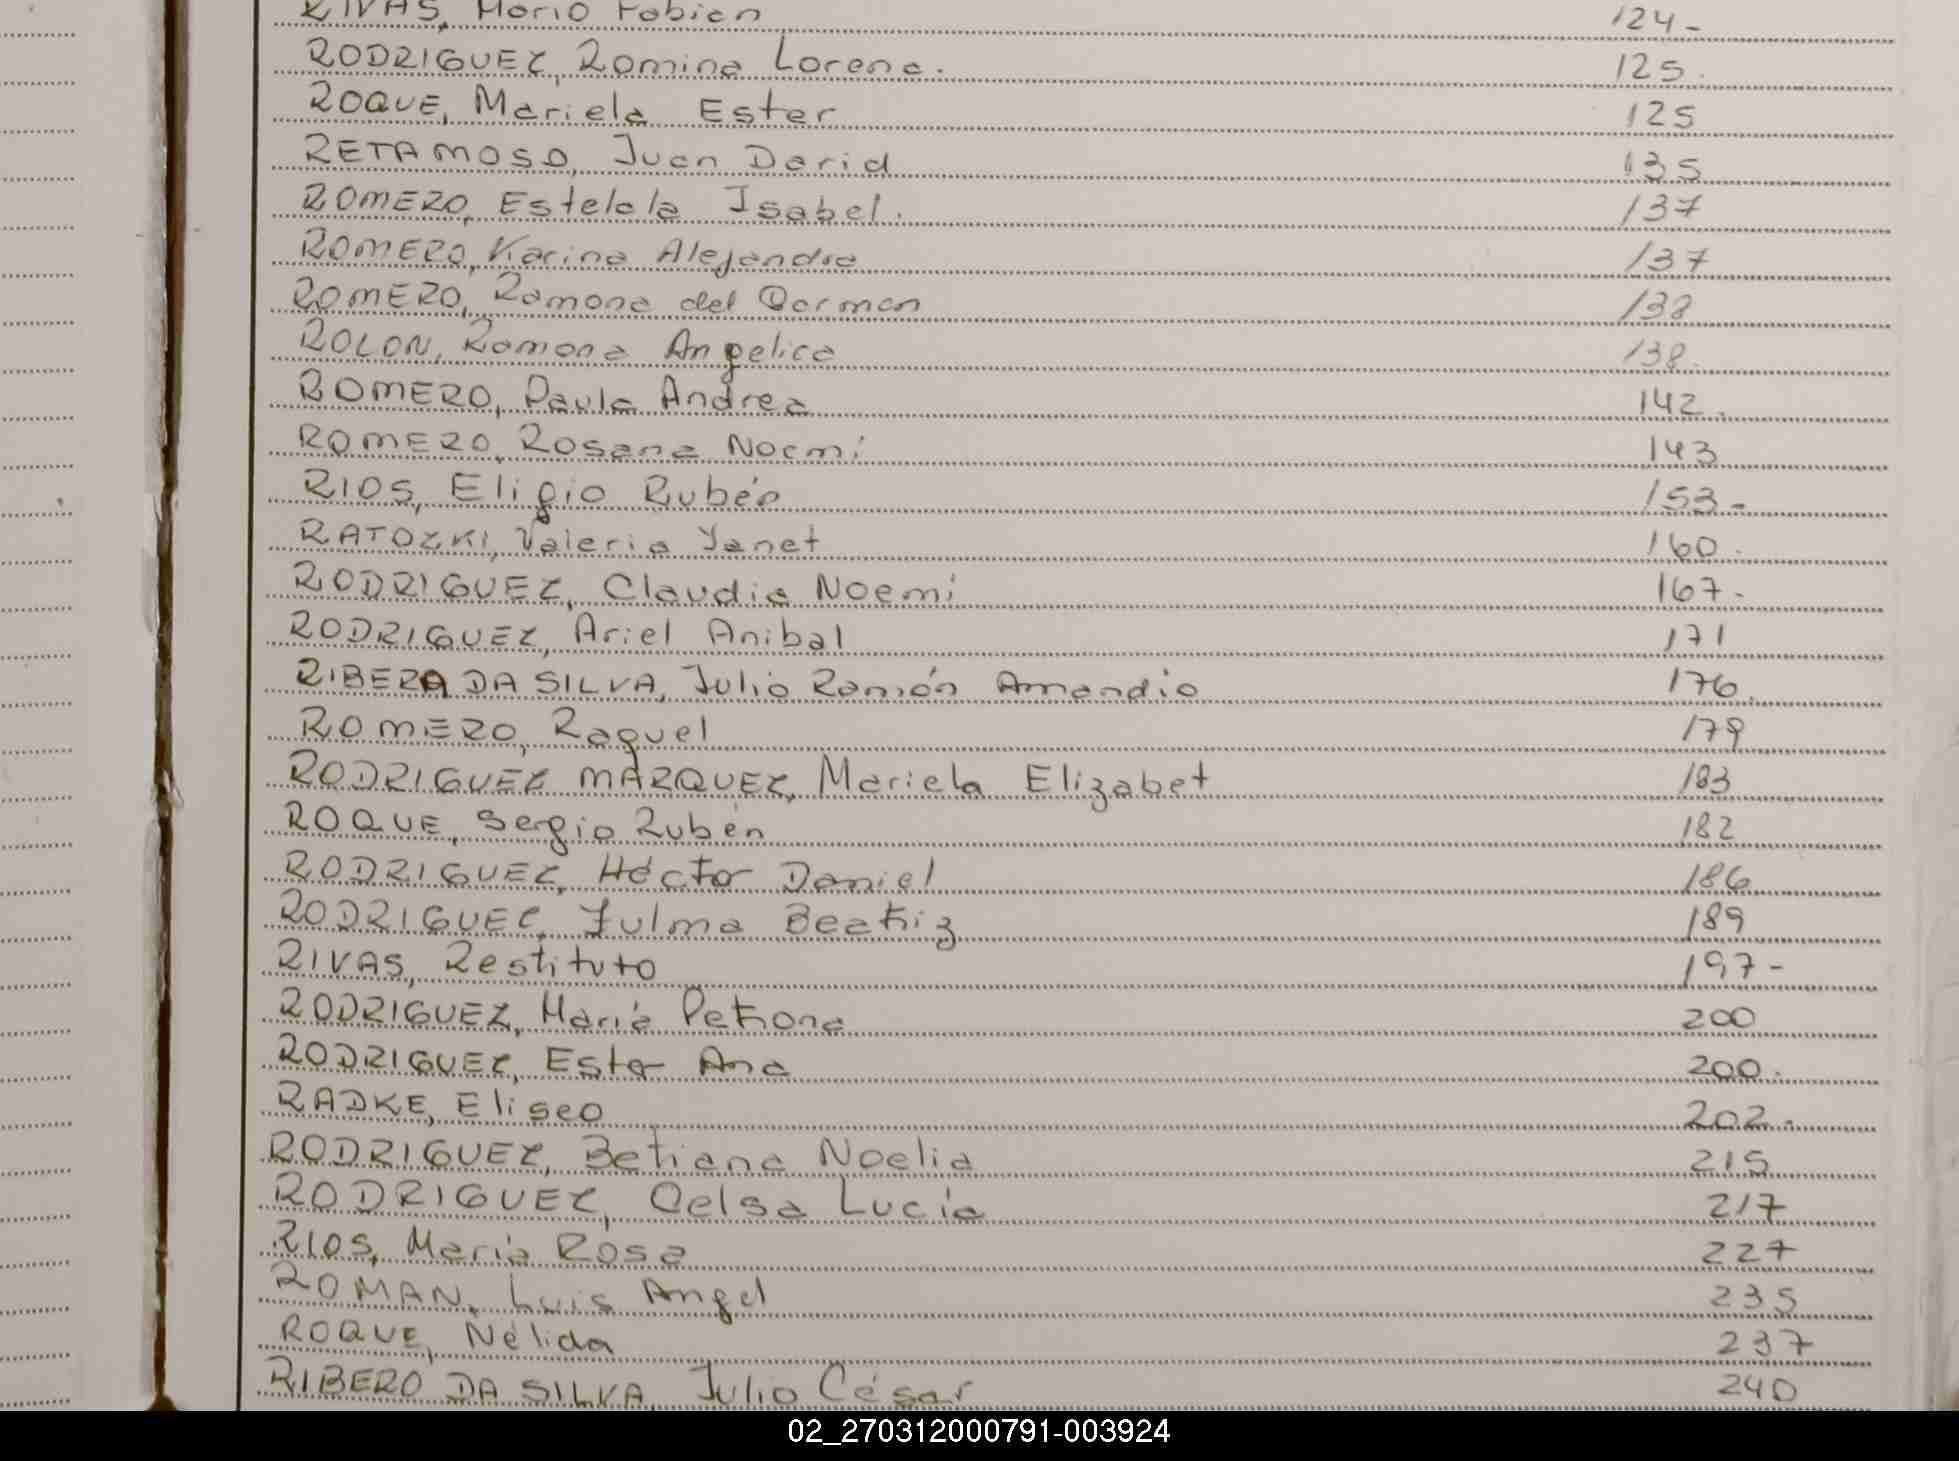 RIVAS, Mario Fabian 124-
RODRIGUEZ, Romina Lorena. 125.
ROQUE, Mariela Ester 125
RETAMOSO, Juan David 135
ROMERO, Estelola Isabel. 137
ROMERO, Karina Alejandra 137
ROMERO, Ramona del Carmen 138
ROLON, Ramona Angelica 138.
ROMERO, Paula Andrea 142.
ROMERO, Rosana Noemí 143
RIOS, Eligio Rubén 153-
RATOZKI, Valeria Yanet 160.
RODRIGUEZ, Claudia Noemí 167-
RODRIGUEZ, Ariel Anibal 171
RIBERA DA SILVA, Julio Ramón Amandio 176.
ROMERO, Raquel 179
RODRIGUEZ MARQUEZ, Mariela Elizabet 183
ROQUE, Sergio Rubén 182
RODRIGUEZ, Héctor Daniel 186
RODRIGUEZ, Zulma Beatriz 189
RIVAS, Restituto 197-
RODRIGUEZ, María Petrona 200
RODRIGUEZ, Ester Ana 200.
RADKE, Eliseo 202.
RODRIGUEZ, Betiana Noelia 215
RODRIGUEZ, Celsa Lucía 217
RIOS, María Rosa 227
ROMAN, Luis Angel 235
ROQUE, Nélida 237
RIBERO DA SILVA, Julio César 240
02_270312000791-003924